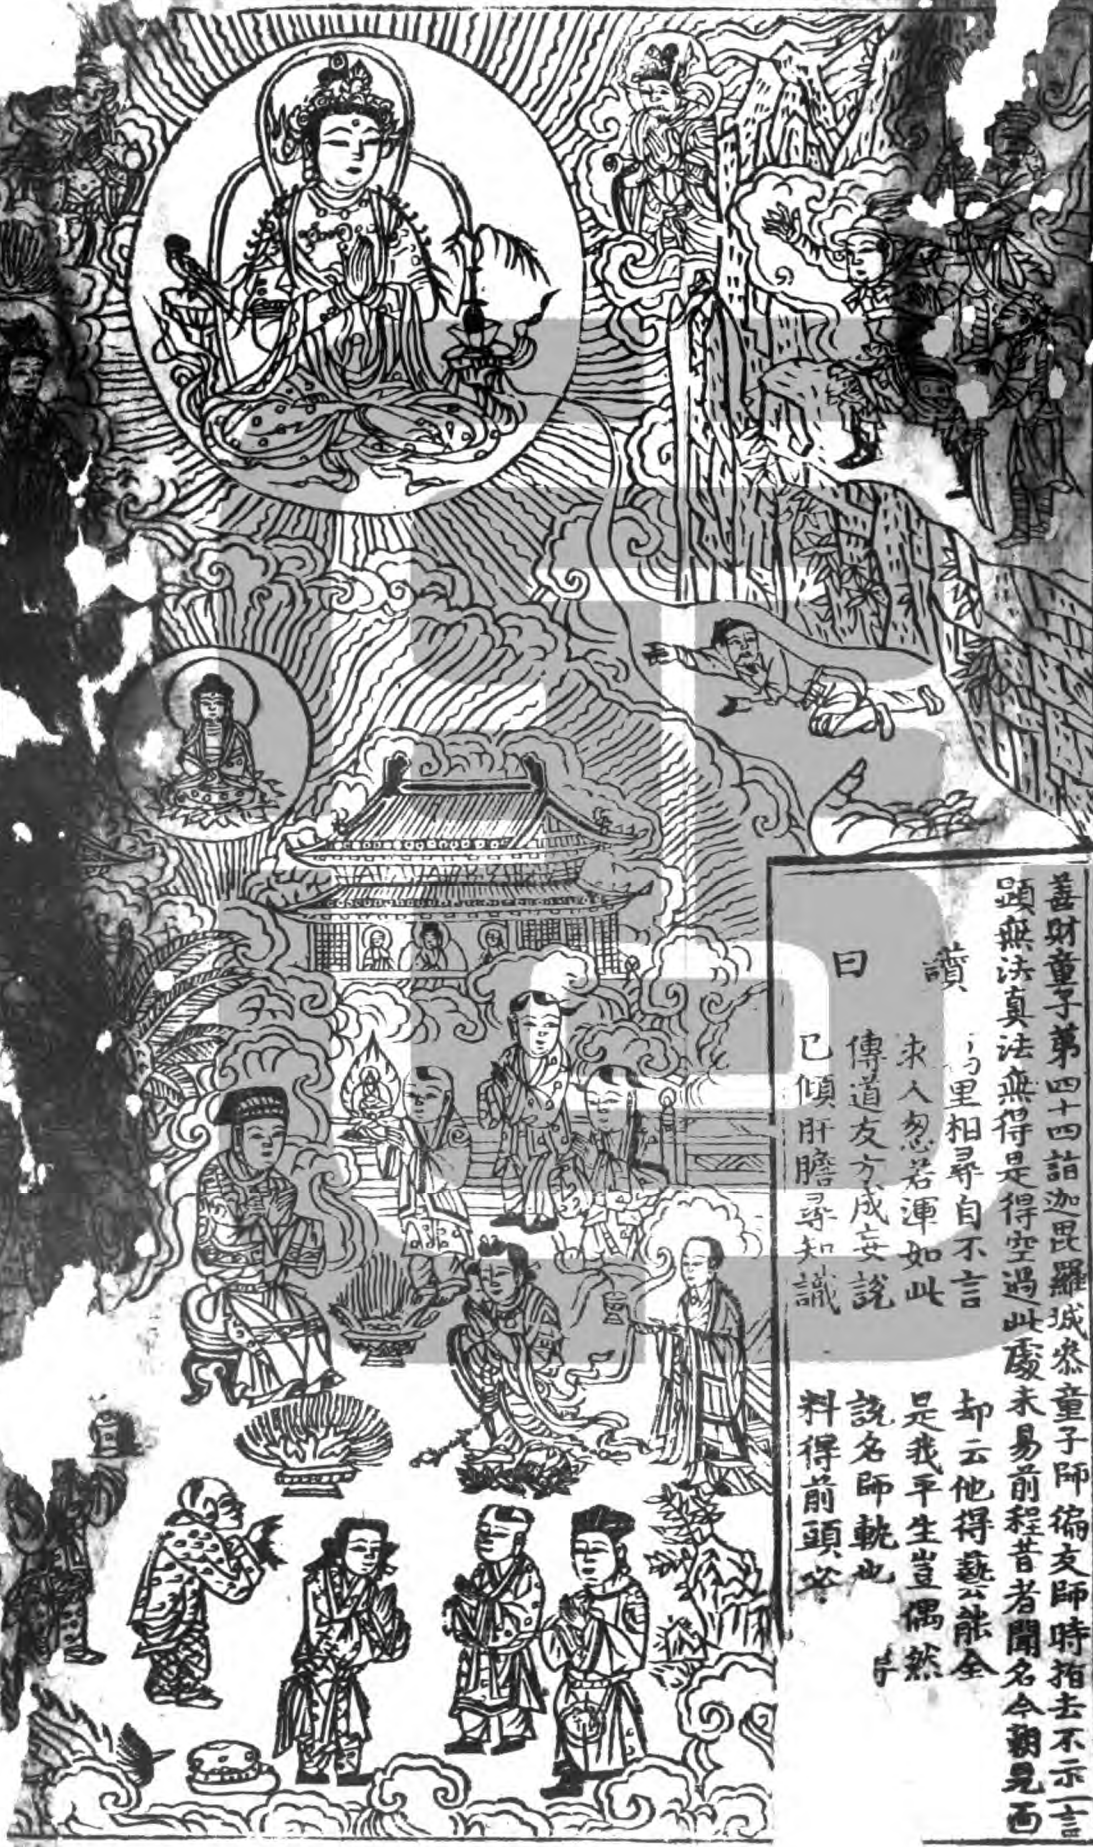 善財童子第四十四詣迦毘羅城叅童子師徧友師時指去不示一言
顕無法真法無得是得空過此處未易前程昔者聞名今朝見面
讚曰
里相尋自不言 却云他得藝能全
求人忽若渾如此 是我平生豈偶然
傳道友方成妄說 說名師軌也
已傾肝膽尋知識 料得前頭必